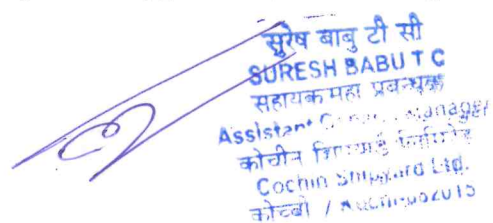 सुरेष बाबु टी सी
SURESH BABU T C
सहायक महा प्रबन्धक
Assistant General Manager
कोचीन शिपयार्ड लिमिटेड
Cochin Shipyard Ltd.
कोच्ची / Kochi-682015